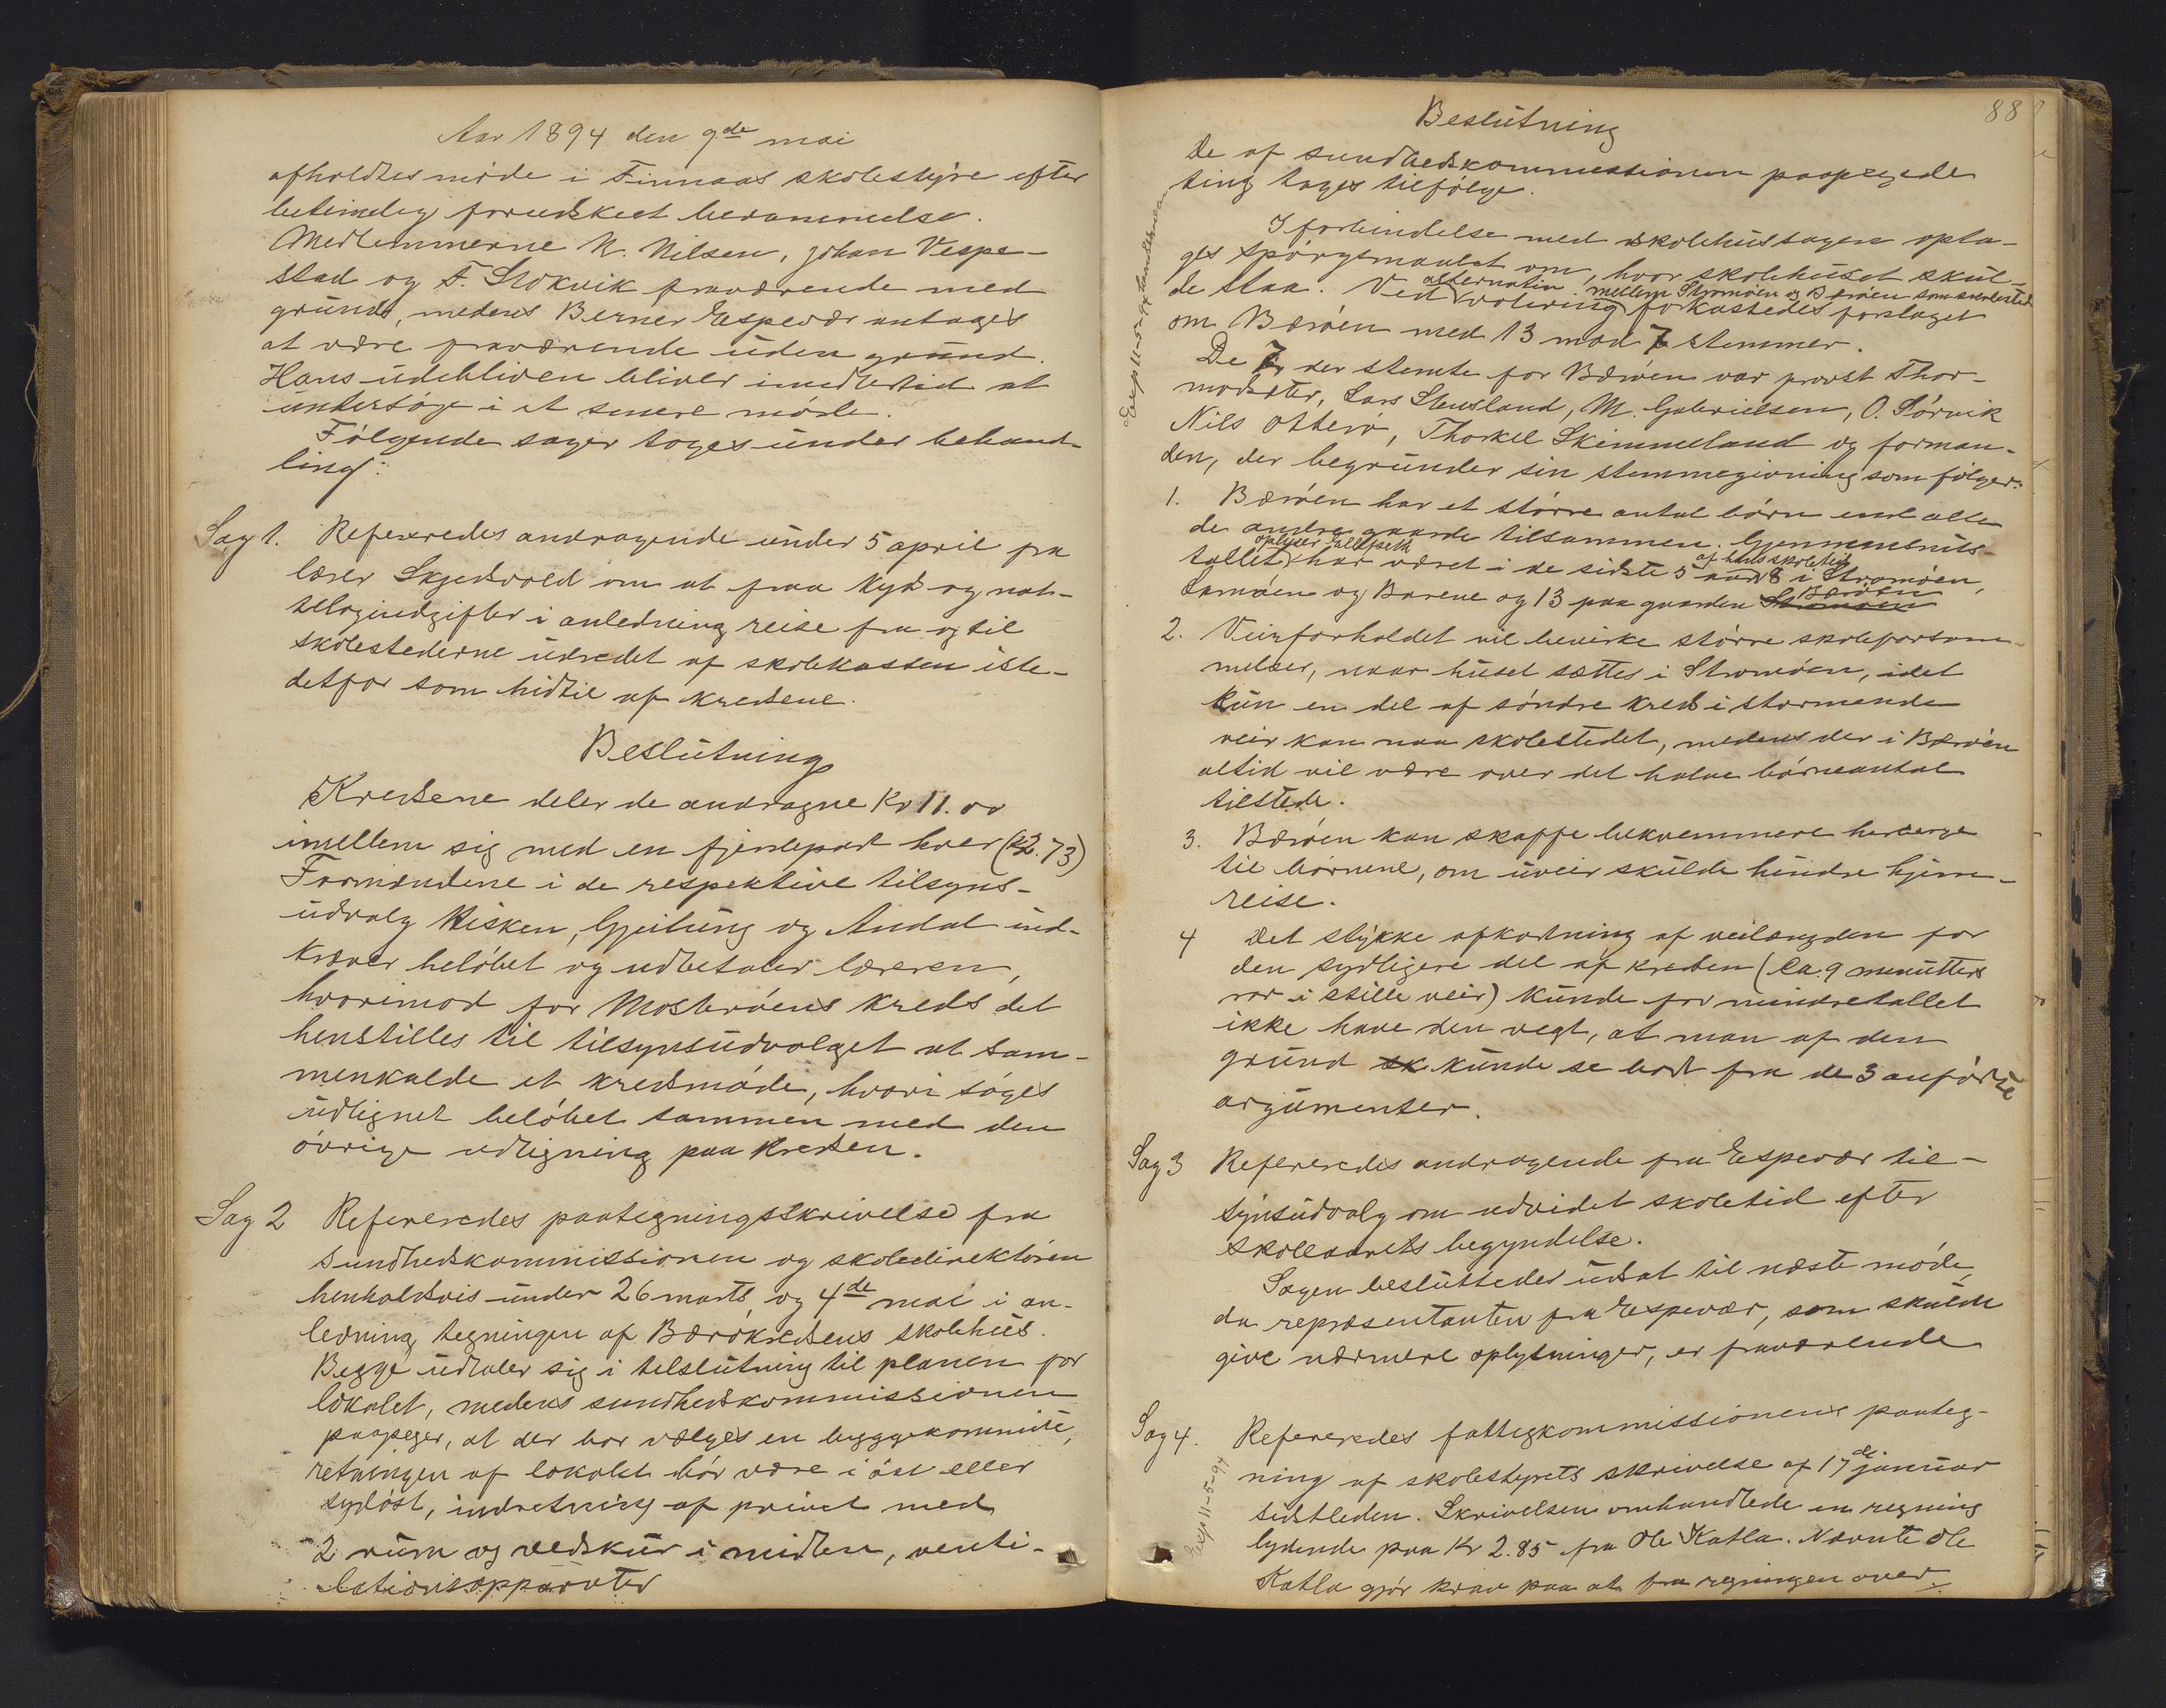 Aar 1894 den 9de mai
afholdtes møde i Finnaas skolestyre efter
betimelig forudskeet berammelse.
Medlemmerne N. Nilsen, Johan Vespe-
stad og F. Stokvik fraværende med
grund, medens Berner Espevær antages
at være fraværende uden grund.
Hans udebliven bliver imidlertid at
undersøge i et senere møde.
Følgende sager toges under behand-
ling:
Sag 1. Refereredes andragende under 5 april fra
lærer Skjedsvold om at faa skyds og nat-
telogiudgifter i anledning reise fra og til
skolestederne udredet af skolekassen iste-
detfor som hidtil af kredsene.
Beslutning
Kredsene deler de andragne Kr 11.00
imellem sig med en fjerdepart hver (Kr 2.73)
Formændene i de respektive tilsyns-
udvalg Hisken, Gjeitung og Andal ind-
kræver beløbet og udbetaler læreren,
hvorimod for Mosterøens kreds det
henstilles til tilsynsudvalget at sam-
menkalde et kredsmøde, hvori søges
udlignet beløbet sammen med den
øvrige udligning paa kredsen.
Sag 2 Refereredes paategningsskrivelse fra
sundhedskommissionen og skoledirektøren
henholdsvis under 26 marts og 4de mai i an-
ledning tegningen af Bærøkredsens skolehus.
Begge udtaler sig i tilslutning til planen for
lokalet, medens sundhedskommissionen
paapeger, at der bør vælges en byggekommite,
retningen af lokalet bør være i øst eller
sydøst, indretning af privet med
2 rum og vedskur i midten, venti-
lationsapparater
88
Beslutning
De af sundhedskommissionen paapegede
ting tages tilfølge.
I forbindelse med skolehustagen opta-
ges spørgsmaalet om, hvor skolehuset skul-
alternativ mellem Strømøen og Bærøen som skolested
de staa. Ved votering forkastedes forslaget
om Bærøen med 13 mod 7 stemmer.
De 7, der stemte for Bærøen var provst Thor-
modsæter, Lars Stensland, M. Gabrielsen, O. Sørvik
Nils Otterø, Thorkel Skimmeland og forman-
den, der begrunder sin stemmegivning som følger:
1. Bærøen har et større antal børn end alle
de andre gaarde tilsammen. Gjennemsnits-
oplyser Ellefseth af hans skoletid
tallet har været i de sidste 5 aar 8 i Strømøen,
Bærøen
Larnøen og Barene og 13 paa gaarden Strømøen
2. Veirforholdet vil bevirke større skoleforsøm-
melser, naar huset sættes i Strømøen, idet
kun en del af søndre kreds i stormende
veir kan naa skolestedet, medens der i Bærøen
altid vil være over det halve børneantal
tilstede.
3. Bærøen kan skaffe bekvemmere herberge
til børnene, om uveir skulde hindre hjem-
reise.
4 Det stykke afkortning af veilængden for
den sydligere del af kredsen (ca. 9 minutters
ror i stille veir) kunde for mindretallet
ikke have den vegt, at man af den
grund sk kunde se bort fra de 3 anførte
argumenter.
Sag 3 Refereredes andragende fra Espevær til-
synsudvalg om udvidet skoletid efter
skoleaarets begyndelse.
Sagen besluttedes udsat til næste møde,
da repræsentanten fra Espevær, som skulde
give nærmere oplysninger, er fraværende
Sag 4. Refereredes fattigkommissionens paateg-
ning af skolestyrets skrivelse af 17de januar
sidstleden. Skrivelsen omhandlede en regning
lydende paa Kr 2.85 fra Ole Katla. Nævnte Ole
Katla gjør krav paa at faa regningen over-
Exp 11-5-94